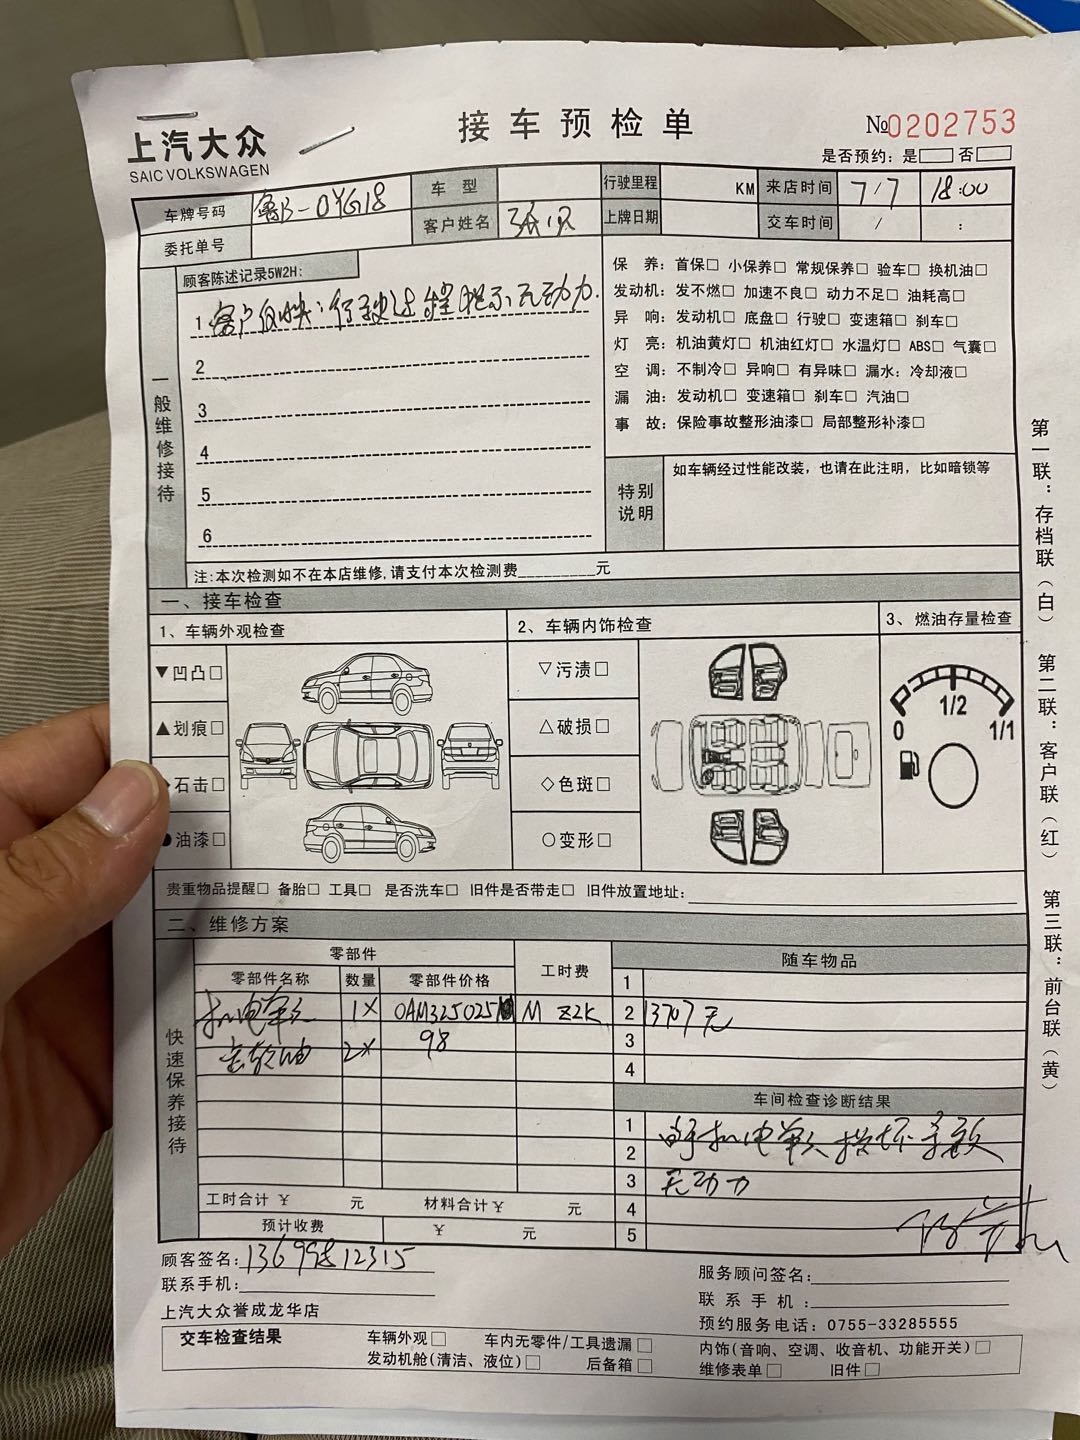 上汽大众
SAIC VOLKSWAGEN
接车预检单
№0202753
是否预约：是□ 否□
车牌号码 粤B-0YG18 车型 行驶里程 KM 来店时间 7/7 18:00
委托单号 客户姓名 上牌日期 交车时间 / :
一般维修接待
顾客陈述记录5W2H:
1 客户反映：行驶过程提示无动力.
2
3
4
5
6
保 养：首保□ 小保养□ 常规保养□ 验车□ 换机油□
发动机：发不燃□ 加速不良□ 动力不足□ 油耗高□
异 响：发动机□ 底盘□ 行驶□ 变速箱□ 刹车□
灯 亮：机油黄灯□ 机油红灯□ 水温灯□ ABS□ 气囊□
空 调：不制冷□ 异响□ 有异味□ 漏水：冷却液□
漏 油：发动机□ 变速箱□ 刹车□ 汽油□
事 故：保险事故整形油漆□ 局部整形补漆□
特别说明
如车辆经过性能改装，也请在此注明，比如暗锁等
注:本次检测如不在本店维修,请支付本次检测费________元
一、接车检查
1、车辆外观检查 2、车辆内饰检查 3、燃油存量检查
▼凹凸□ ▽污渍□
▲划痕□ △破损□
◆石击□ ◇色斑□
●油漆□ ○变形□
0 1/2 1/1
贵重物品提醒□ 备胎□ 工具□ 是否洗车□ 旧件是否带走□ 旧件放置地址:
二、维修方案
快速保养接待
零部件 工时费 随车物品
零部件名称 数量 零部件价格
机电单元 1X 0AM325025 M Z2K
齿轮油 2X 98
1
2 13707元
3
4
车间检查诊断结果
1 由于机电单元损坏导致
2
3 无动力
4
5
工时合计 ¥ 元 材料合计¥ 元
预计收费 ¥ 元
顾客签名:
联系手机:
上汽大众誉成龙华店
服务顾问签名:
联系手机:
预约服务电话: 0755-33285555
交车检查结果 车辆外观□ 车内无零件/工具遗漏□ 内饰(音响、空调、收音机、功能开关)□
发动机舱(清洁、液位)□ 后备箱□ 维修表单□ 旧件□
第一联：存档联（白）
第二联：客户联（红）
第三联：前台联（黄）